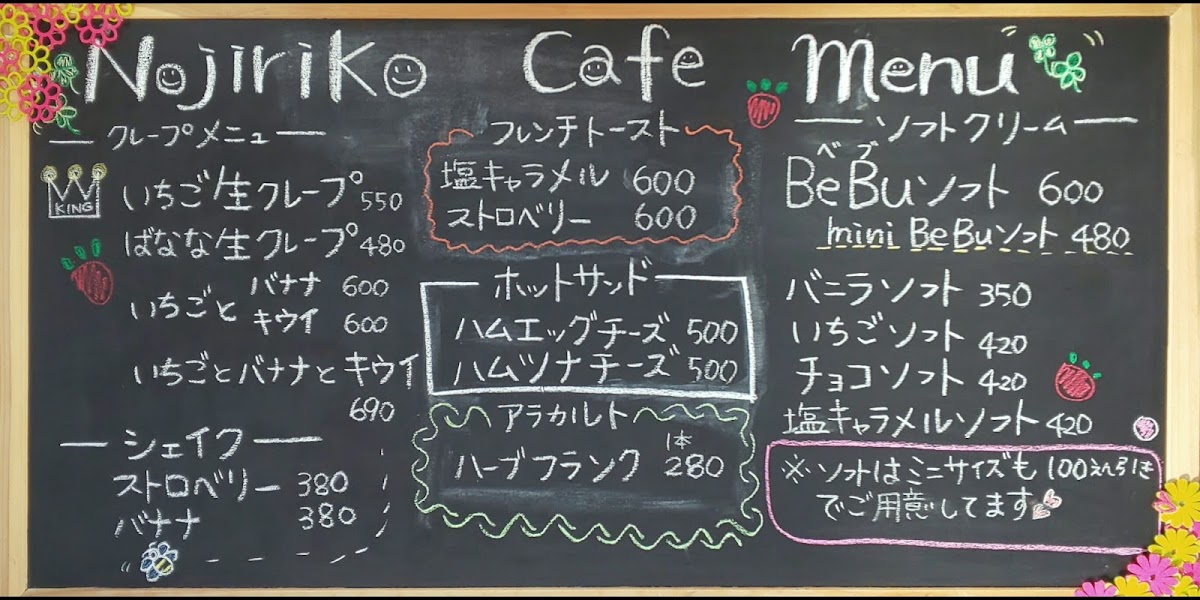 Nojiriko Cafe Menu
クレープメニュー
KING
いちご生クレープ 550
ばなな生クレープ 480
いちごと バナナ 600
キウイ 600
いちごとバナナとキウイ
690
シェイク
ストロベリー 380
バナナ 380
フレンチトースト
塩キャラメル 600
ストロベリー 600
ホットサンド
ハムエッグチーズ 500
ハムツナチーズ 500
アラカルト
ハーブフランク 1本 280
ソフトクリーム
ベブ
BeBuソフト 600
mini BeBuソフト 480
バニラソフト 350
いちごソフト 420
チョコソフト 420
塩キャラメルソフト 420
※ソフトはミニサイズも100えん引き
でご用意してます